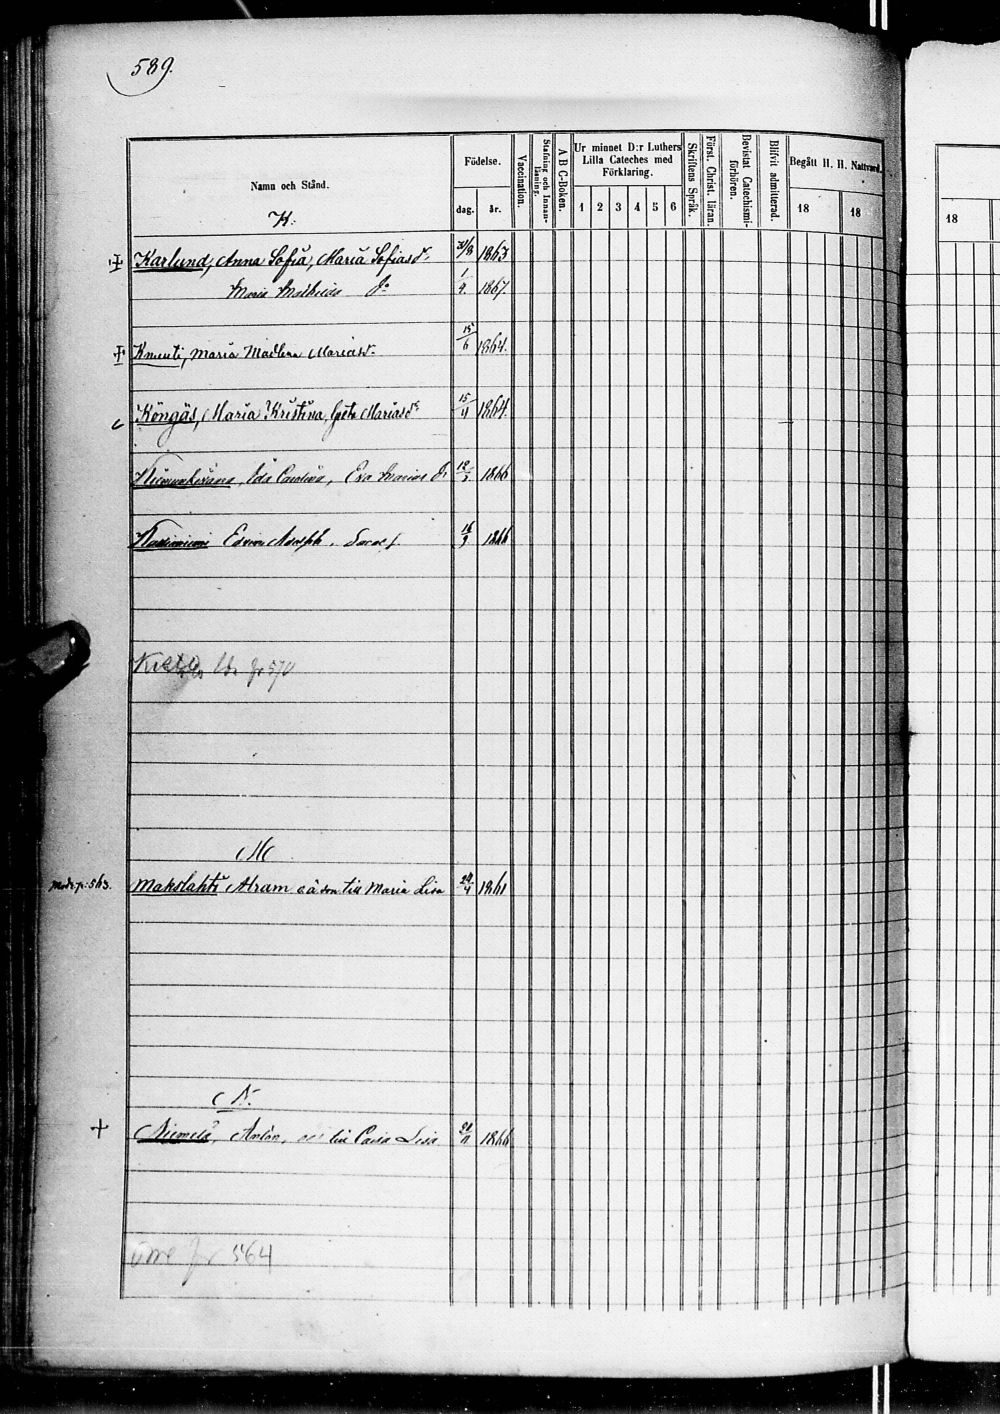 589.
Namn och Stånd.
Födelse.
dag.
år.
Vaccination.
Stafning och Innanläsning.
A B C-Boken.
Ur minnet D:r Luthers Lilla Cateches med Förklaring.
1 2 3 4 5 6
Skriftens Språk.
Först. Christ. läran.
Bevistat Catechismiförhören.
Blifvit admitterad.
Begått H. H. Nattvard.
18 18
18
K.
Karlund, Anna Sofia, Maria Sofiasdr 1863
Maria Mathilda 1/4 1867.
Kmunti, Maria Madlena Mariasdr 15/6 1864.
Köngäs, Maria Kristina, Greta Mariasdr 15/4 1864.
Ida Carolina, Eva Marias dr 12/3 1866
Edvin Adolph, 16/9 1866
570
M
Makslahti Abram o ä son till Maria Lisa 24/4 1861
p: 563.
N.
+ Niemelä, Anton, till Caisa Lisa 1866
564